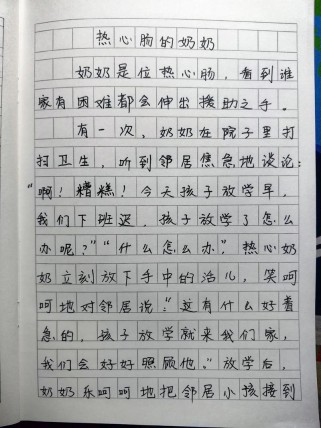 热心肠的奶奶
奶奶是位热心肠，看到谁
家有困难都会伸出援助之手。
有一次，奶奶在院子里打
扫卫生，听到邻居焦急地谈论：
“啊！糟糕！今天孩子放学早，
我们下班迟，孩子放学了怎么
办呢？”“什么怎么办”，热心奶
奶立刻放下手中的活儿，笑呵
呵地对邻居说：“这有什么好着
急的，孩子放学就来我们家，
我们会好好照顾他。”放学后，
奶奶乐呵呵地把邻居小孩接到